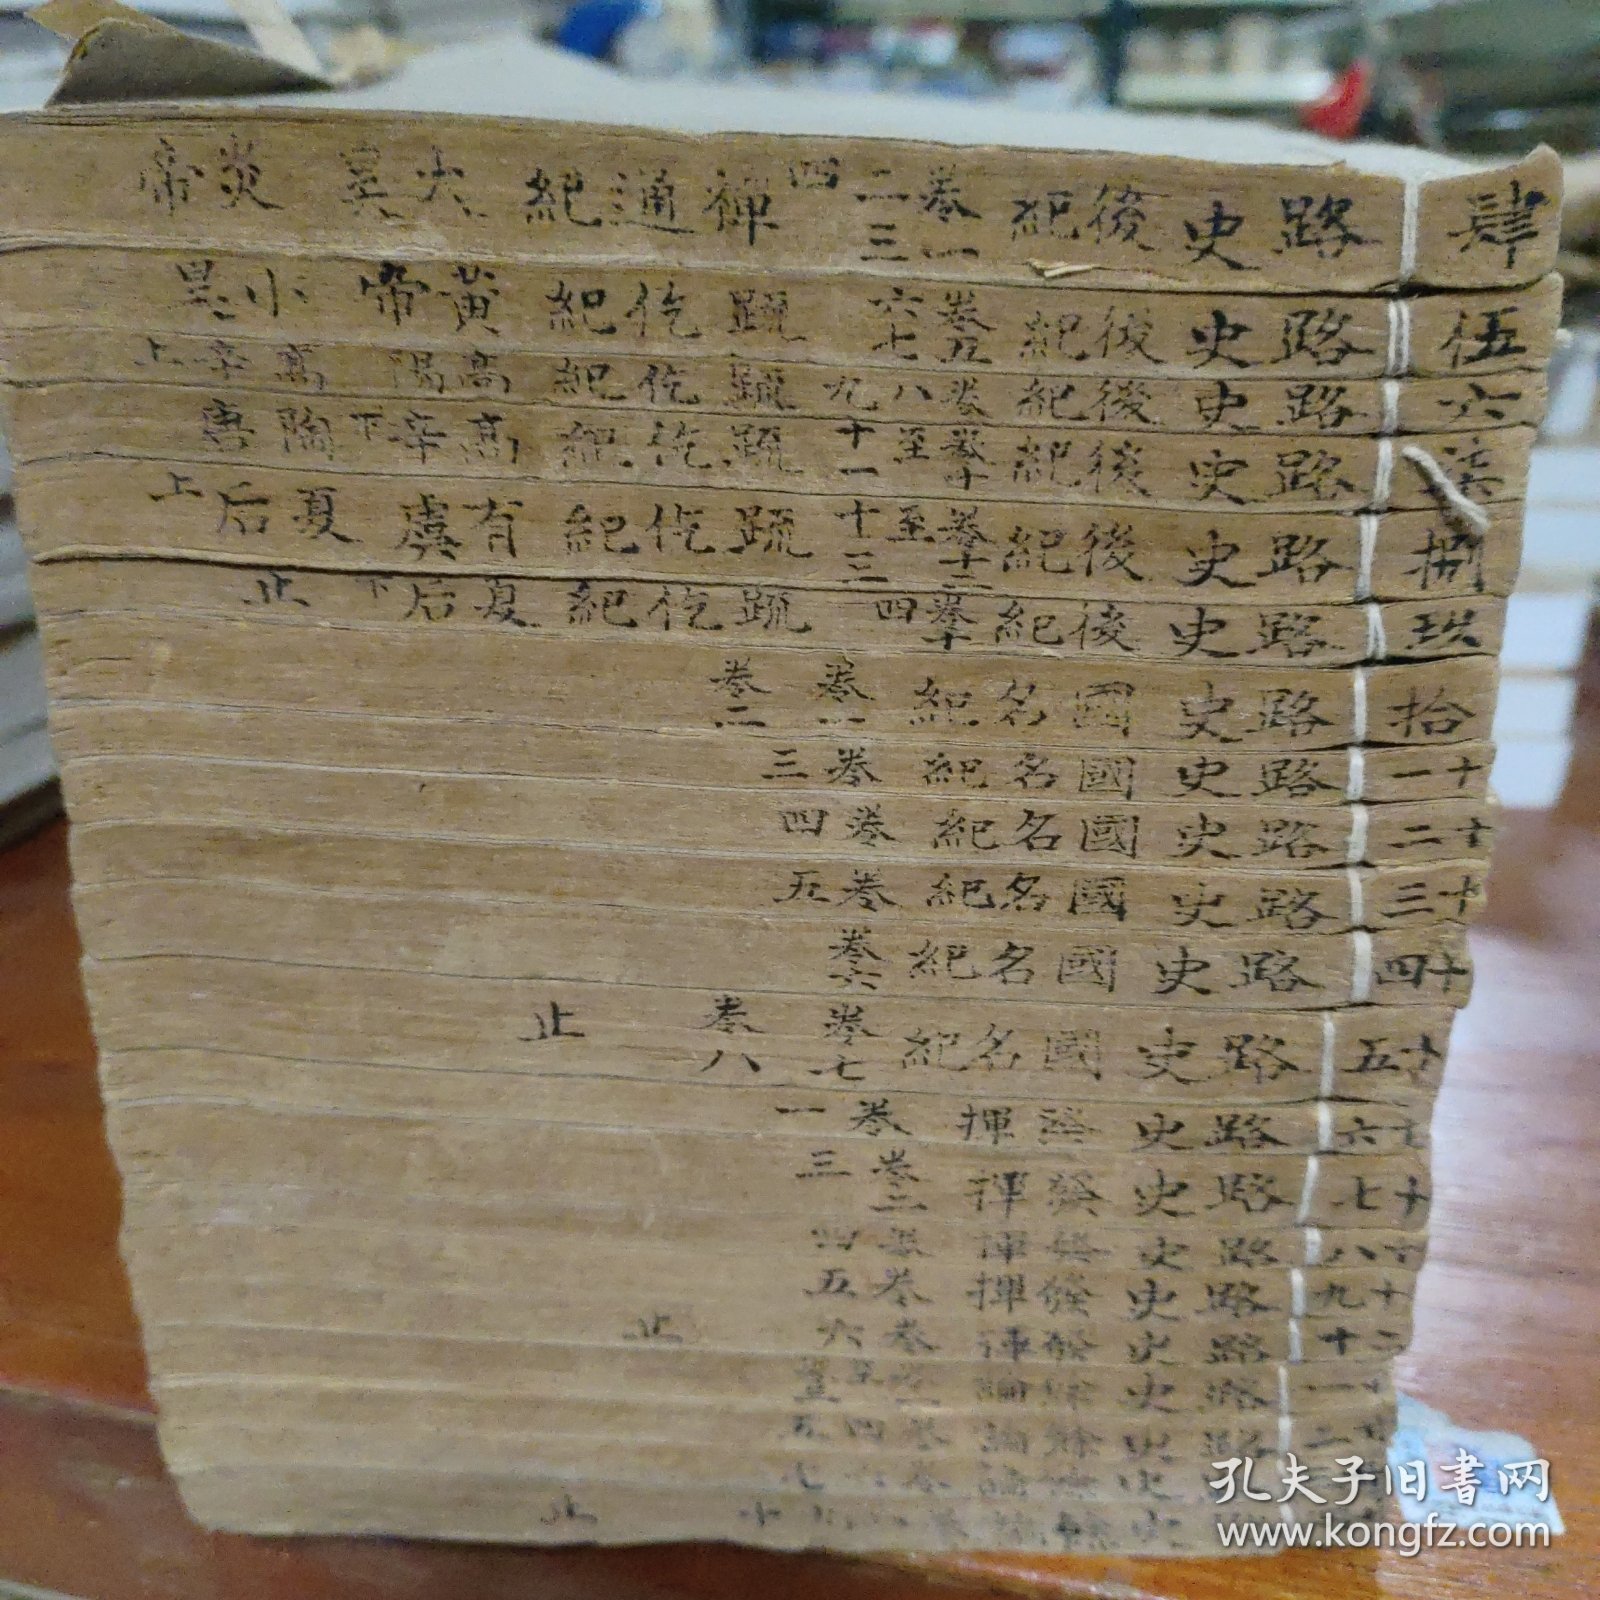 肆 路史 後紀 卷一 二 三 四 禪通紀 太昊 炎帝
伍 路史 後紀 卷五 六 七 疏仡紀 黃帝 小昊
六 路史 後紀 卷八 九 疏仡紀 高陽 高辛上
柒 路史 後紀 卷十 至 十一 疏仡紀 高辛下 陶唐
捌 路史 後紀 卷十二 至 十三 疏仡紀 有虞 夏后上
玖 路史 後紀 卷十四 疏仡紀 夏后下 止
拾 路史 國名紀 卷一 卷二
十一 路史 國名紀 卷三
十二 路史 國名紀 卷四
十三 路史 國名紀 卷五
十四 路史 國名紀 卷六
十五 路史 國名紀 卷七 卷八 止
十六 路史 發揮 卷一
十七 路史 發揮 卷二 三
十八 路史 發揮 卷四
十九 路史 發揮 卷五
二十 路史 發揮 卷六 止
一 路史 餘論
二 路史 餘論 卷四 五
史 餘論 卷六 七
史 餘論 十 止
孔夫子旧書网
www.kongfz.com